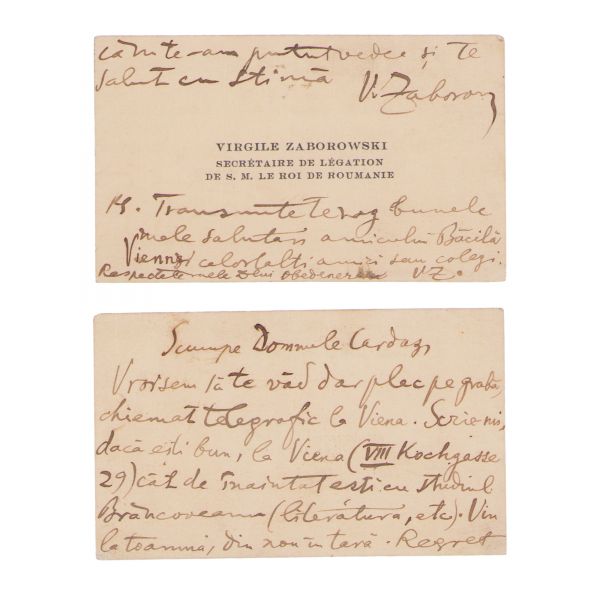 că nu te-am putut vedea și te
salut cu stimă V. Zaborow
VIRGILE ZABOROWSKI
SECRÉTAIRE DE LÉGATION
DE S. M. LE ROI DE ROUMANIE
Transmite te rog bunele
mele salutări amicului Băcilă
Vienna și celorlalți amici sau colegi.
Respectele mele D-lui V. Z.
Scumpe Domnule Cardaș,
Vroisem să te văd dar plec pe grabă,
chemat telegrafic la Viena. Scrie-mi,
dacă ești bun, la Viena (VIII Kochgasse
29) cât de înaintat ești cu studiul
Brâncoveanu (literatura, etc). Vin
la toamnă, din nou în țară. Regret